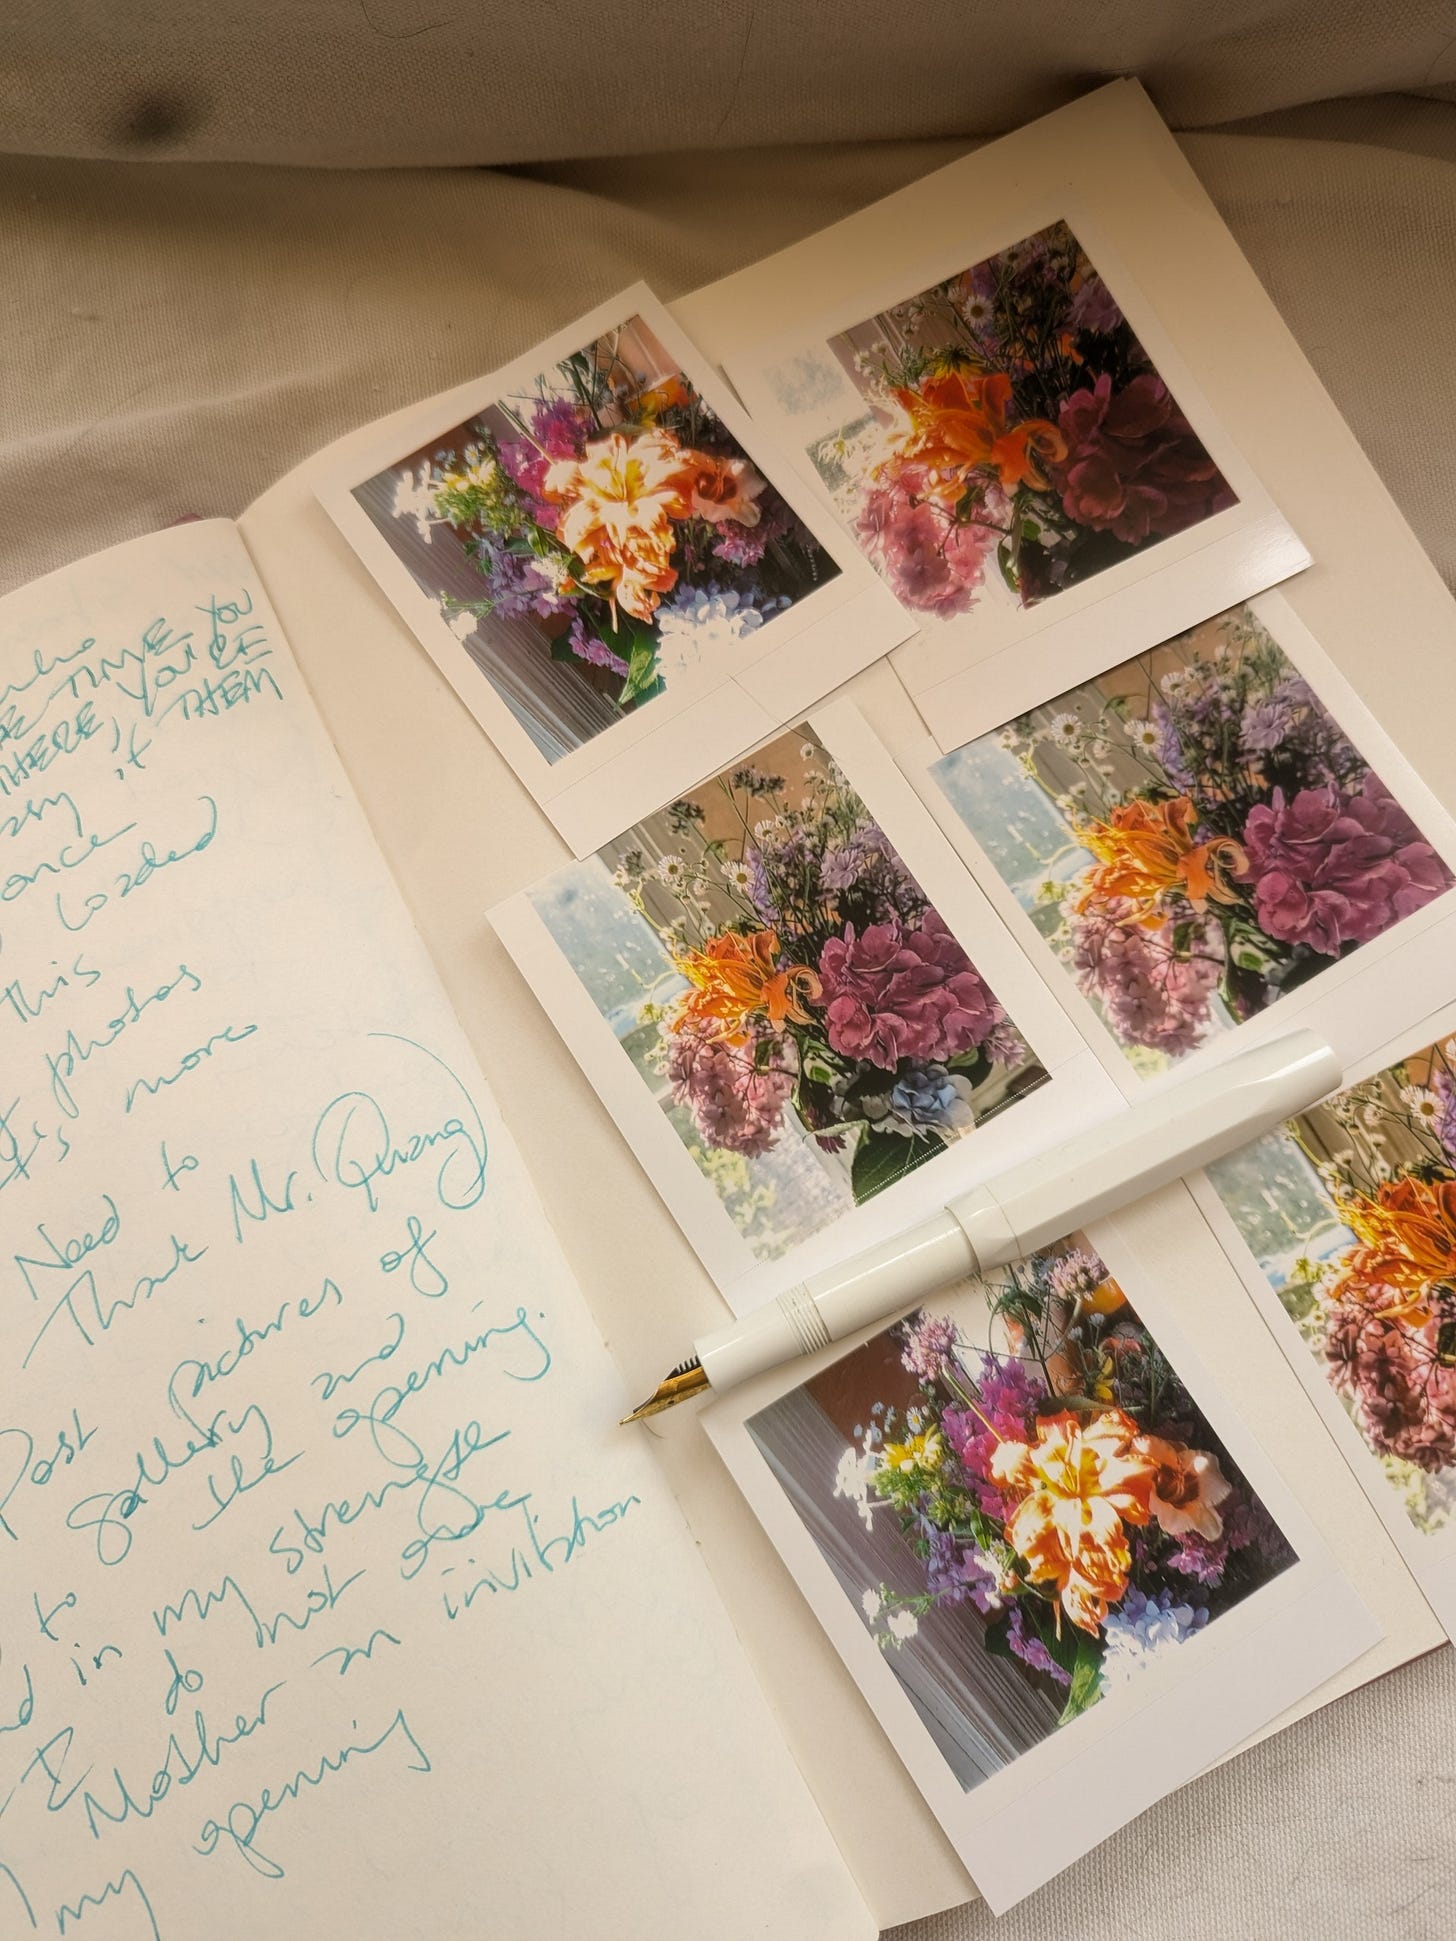 TIME YOU
THERE, YOU'RE
it THEM
once
loaded
this
photos
more
Need to
Thank Mr. Quang
Post pictures of
gallery and
the opening.
to
in my strange
I do not owe
Mother an invitation
my opening